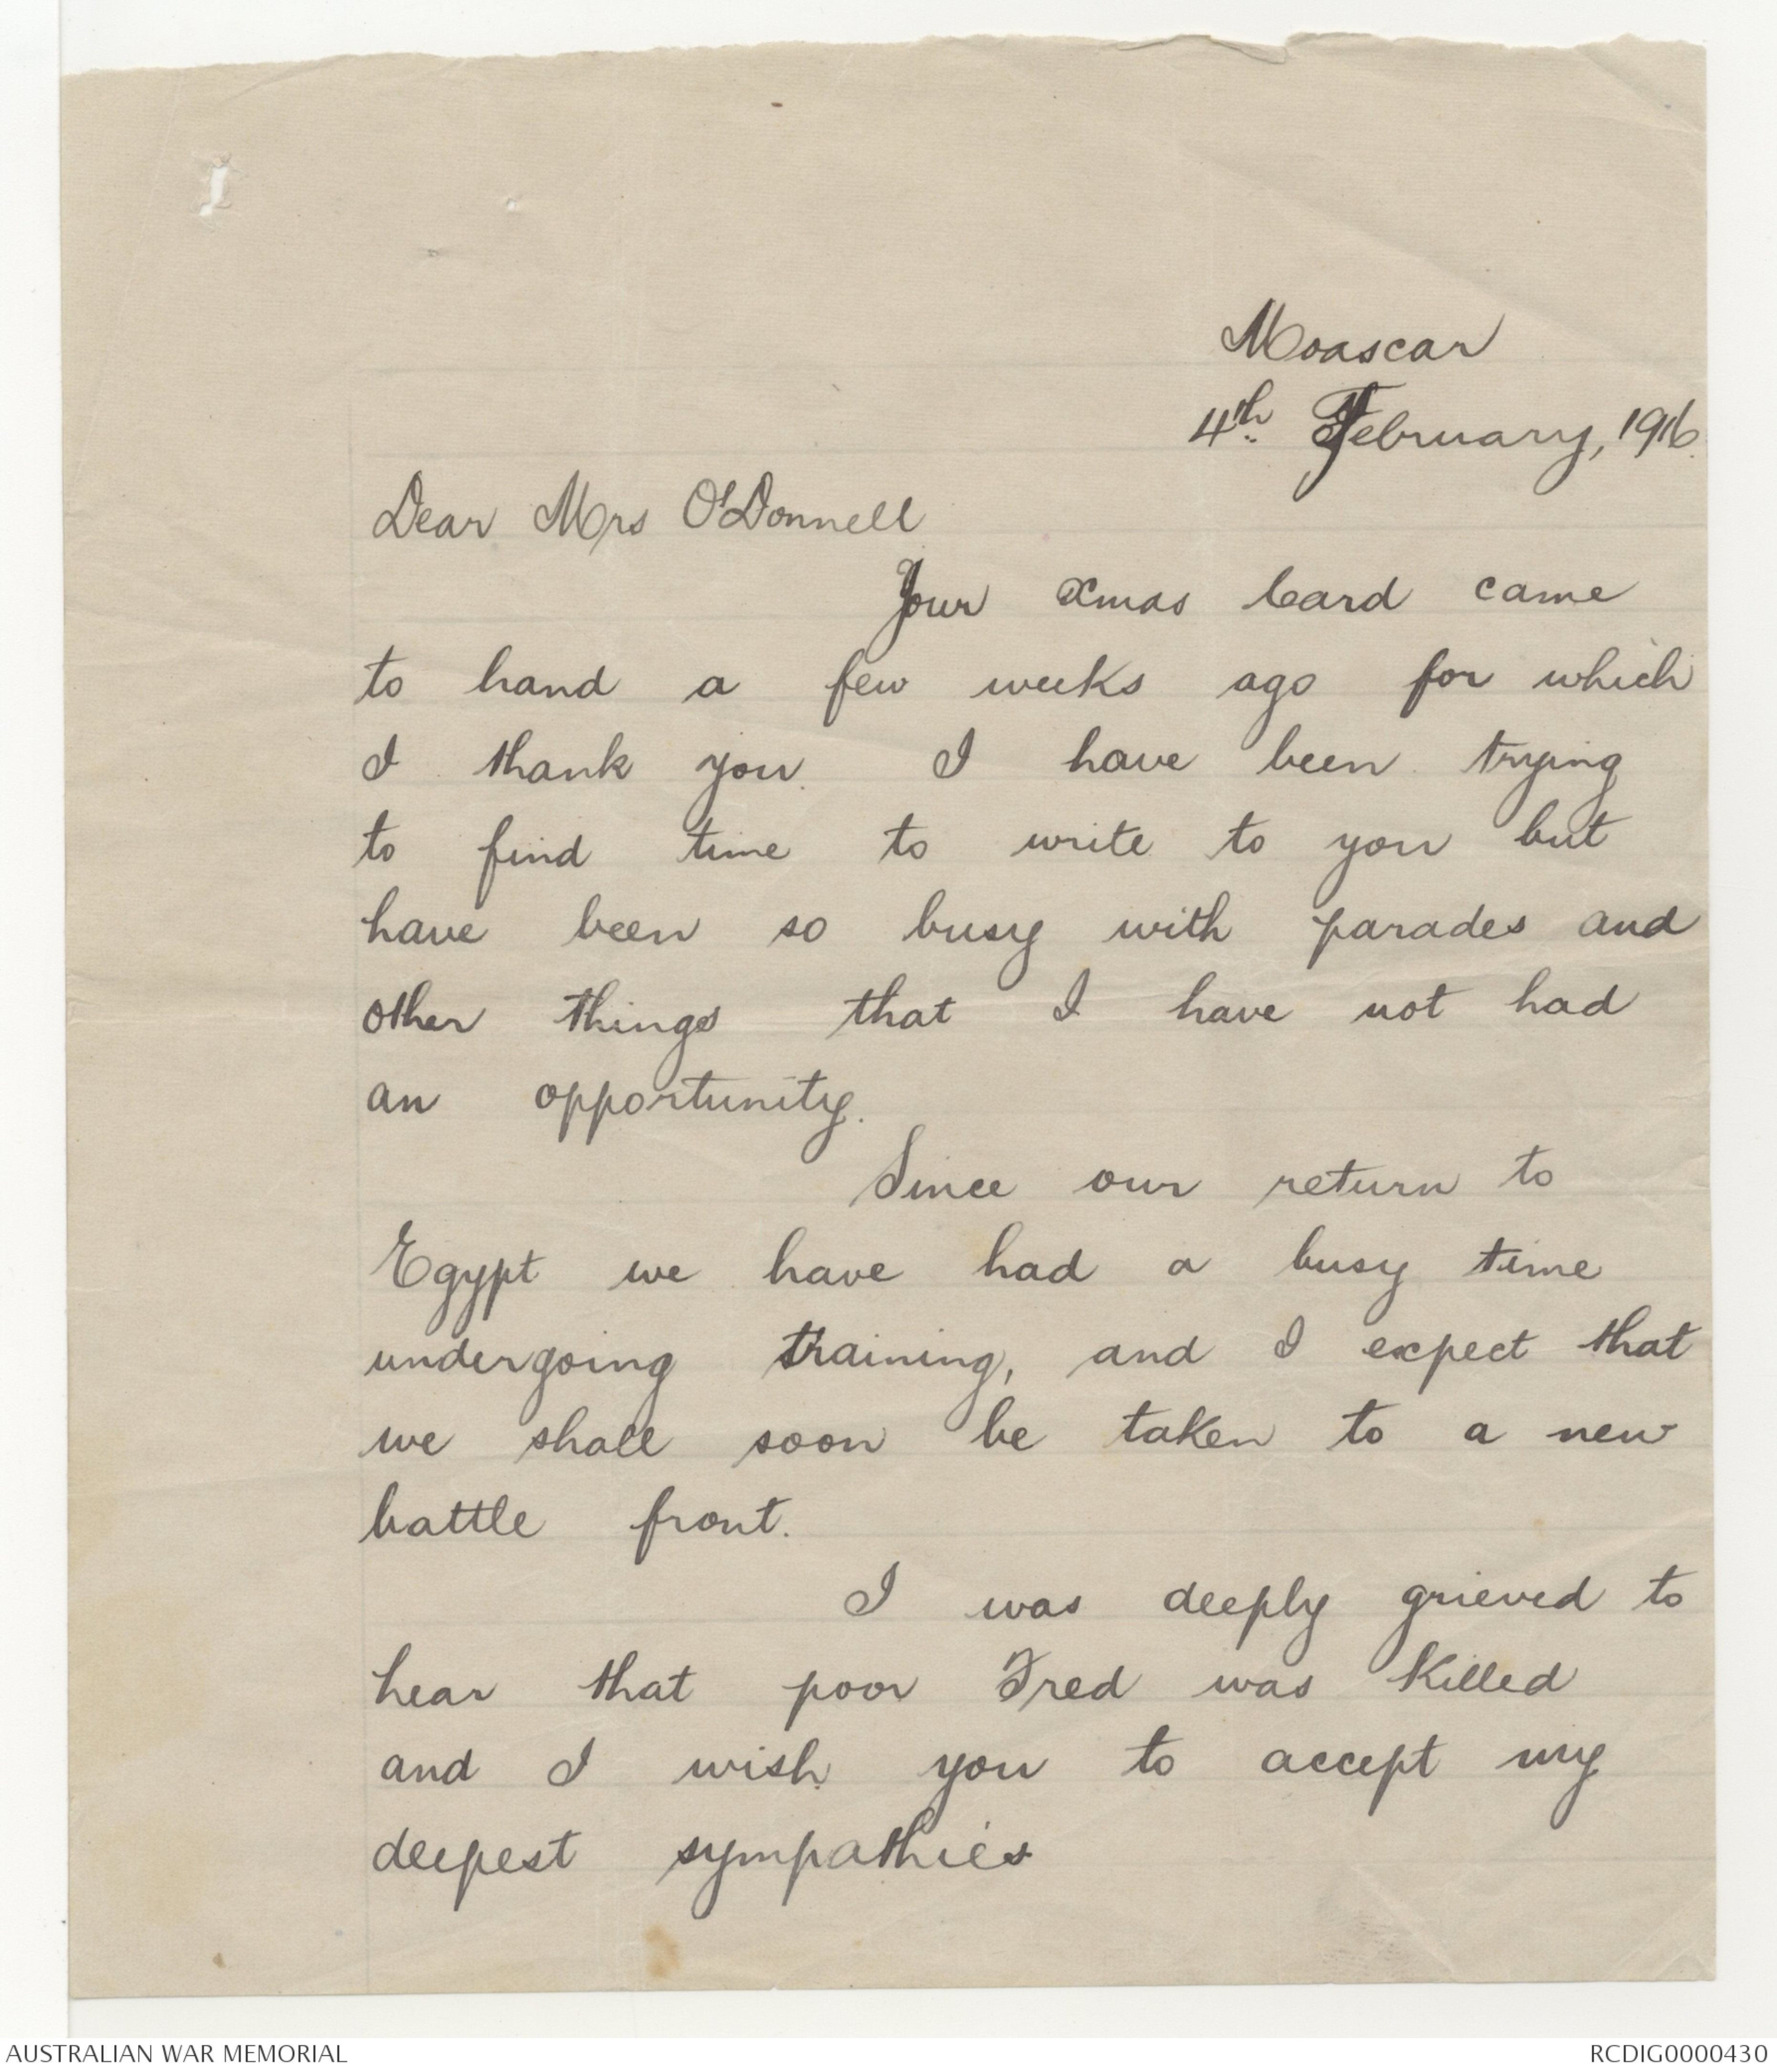 Moascar
4th February, 1916.
Dear Mrs O'Donnell
Your Xmas Card came
to hand a few weeks ago for which
I thank you. I have been trying
to find time to write to you but
have been so busy with parades and
other things that I have not had
an opportunity.
Since our return to
Egypt we have had a busy time
undergoing training, and I expect that
we shall soon be taken to a new
battle front.
I was deeply grieved to
hear that poor Fred was killed
and I wish you to accept my
deepest sympathies
AUSTRALIAN WAR MEMORIAL
RCDIG0000430